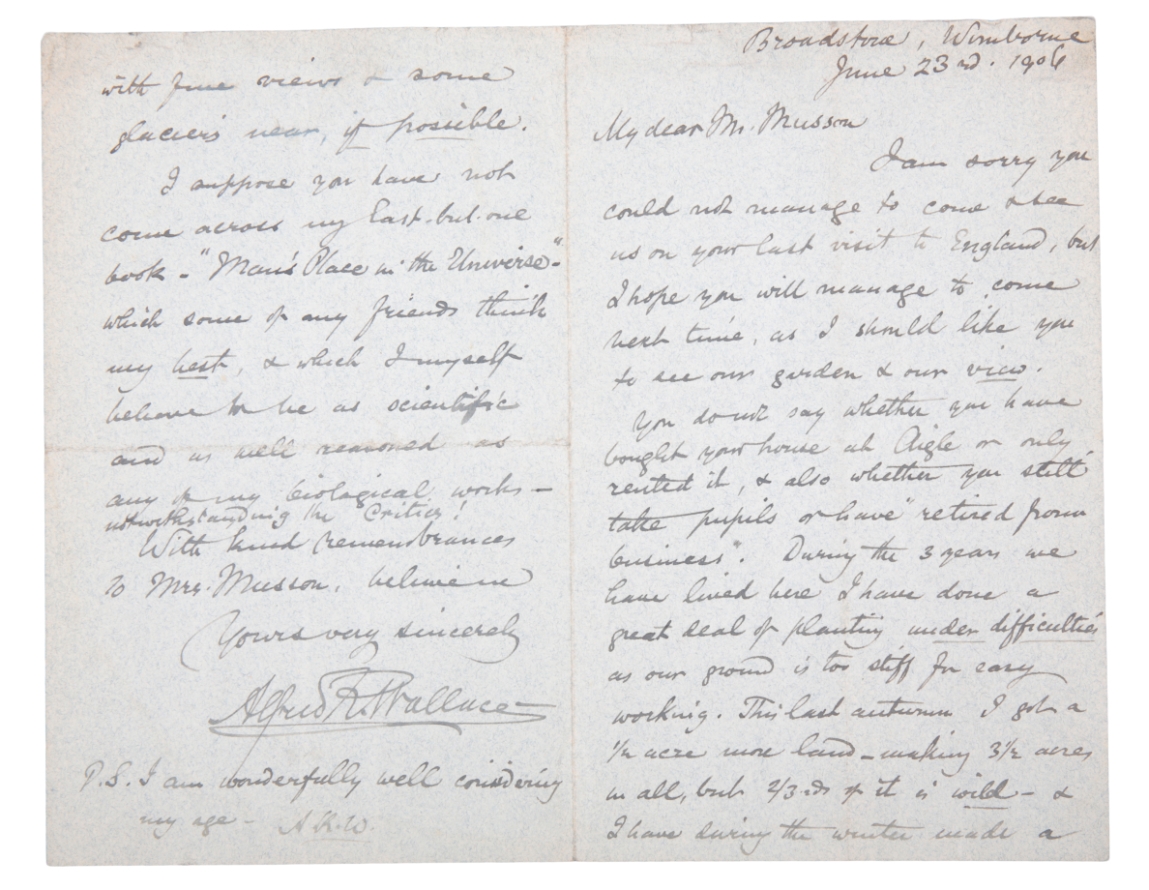 Broadstone, Wimborne
June 23rd. 1906
My dear Mr. Musson
I am sorry you
could not manage to come & see
us on your last visit to England, but
I hope you will manage to come
next time, as I should like you
to see our garden & our view.
You do not say whether you have
bought your house at Aigle or only
rented it, & also whether you still
take pupils or have "retired from
business". During the 3 years we
have lived here I have done a
great deal of planting under difficulties
as our ground is too stiff for easy
working. This last autumn I got a
1/2 acre more land - making 3 1/2 acres
in all, but 2/3rds of it is wild - &
I have during the winter made a
with fine views & some
glaciers near, if possible.
I suppose you have not
come across my last-but-one
book - "Man's Place in the Universe" -
which some of my friends think
my best, & which I myself
believe to be as scientific
and as well reasoned as
any of my biological works -
notwithstanding the Critics!
With kind remembrances
to Mrs. Musson, believe me
Yours very sincerely
Alfred R. Wallace
P.S. I am wonderfully well considering
my age - A.R.W.